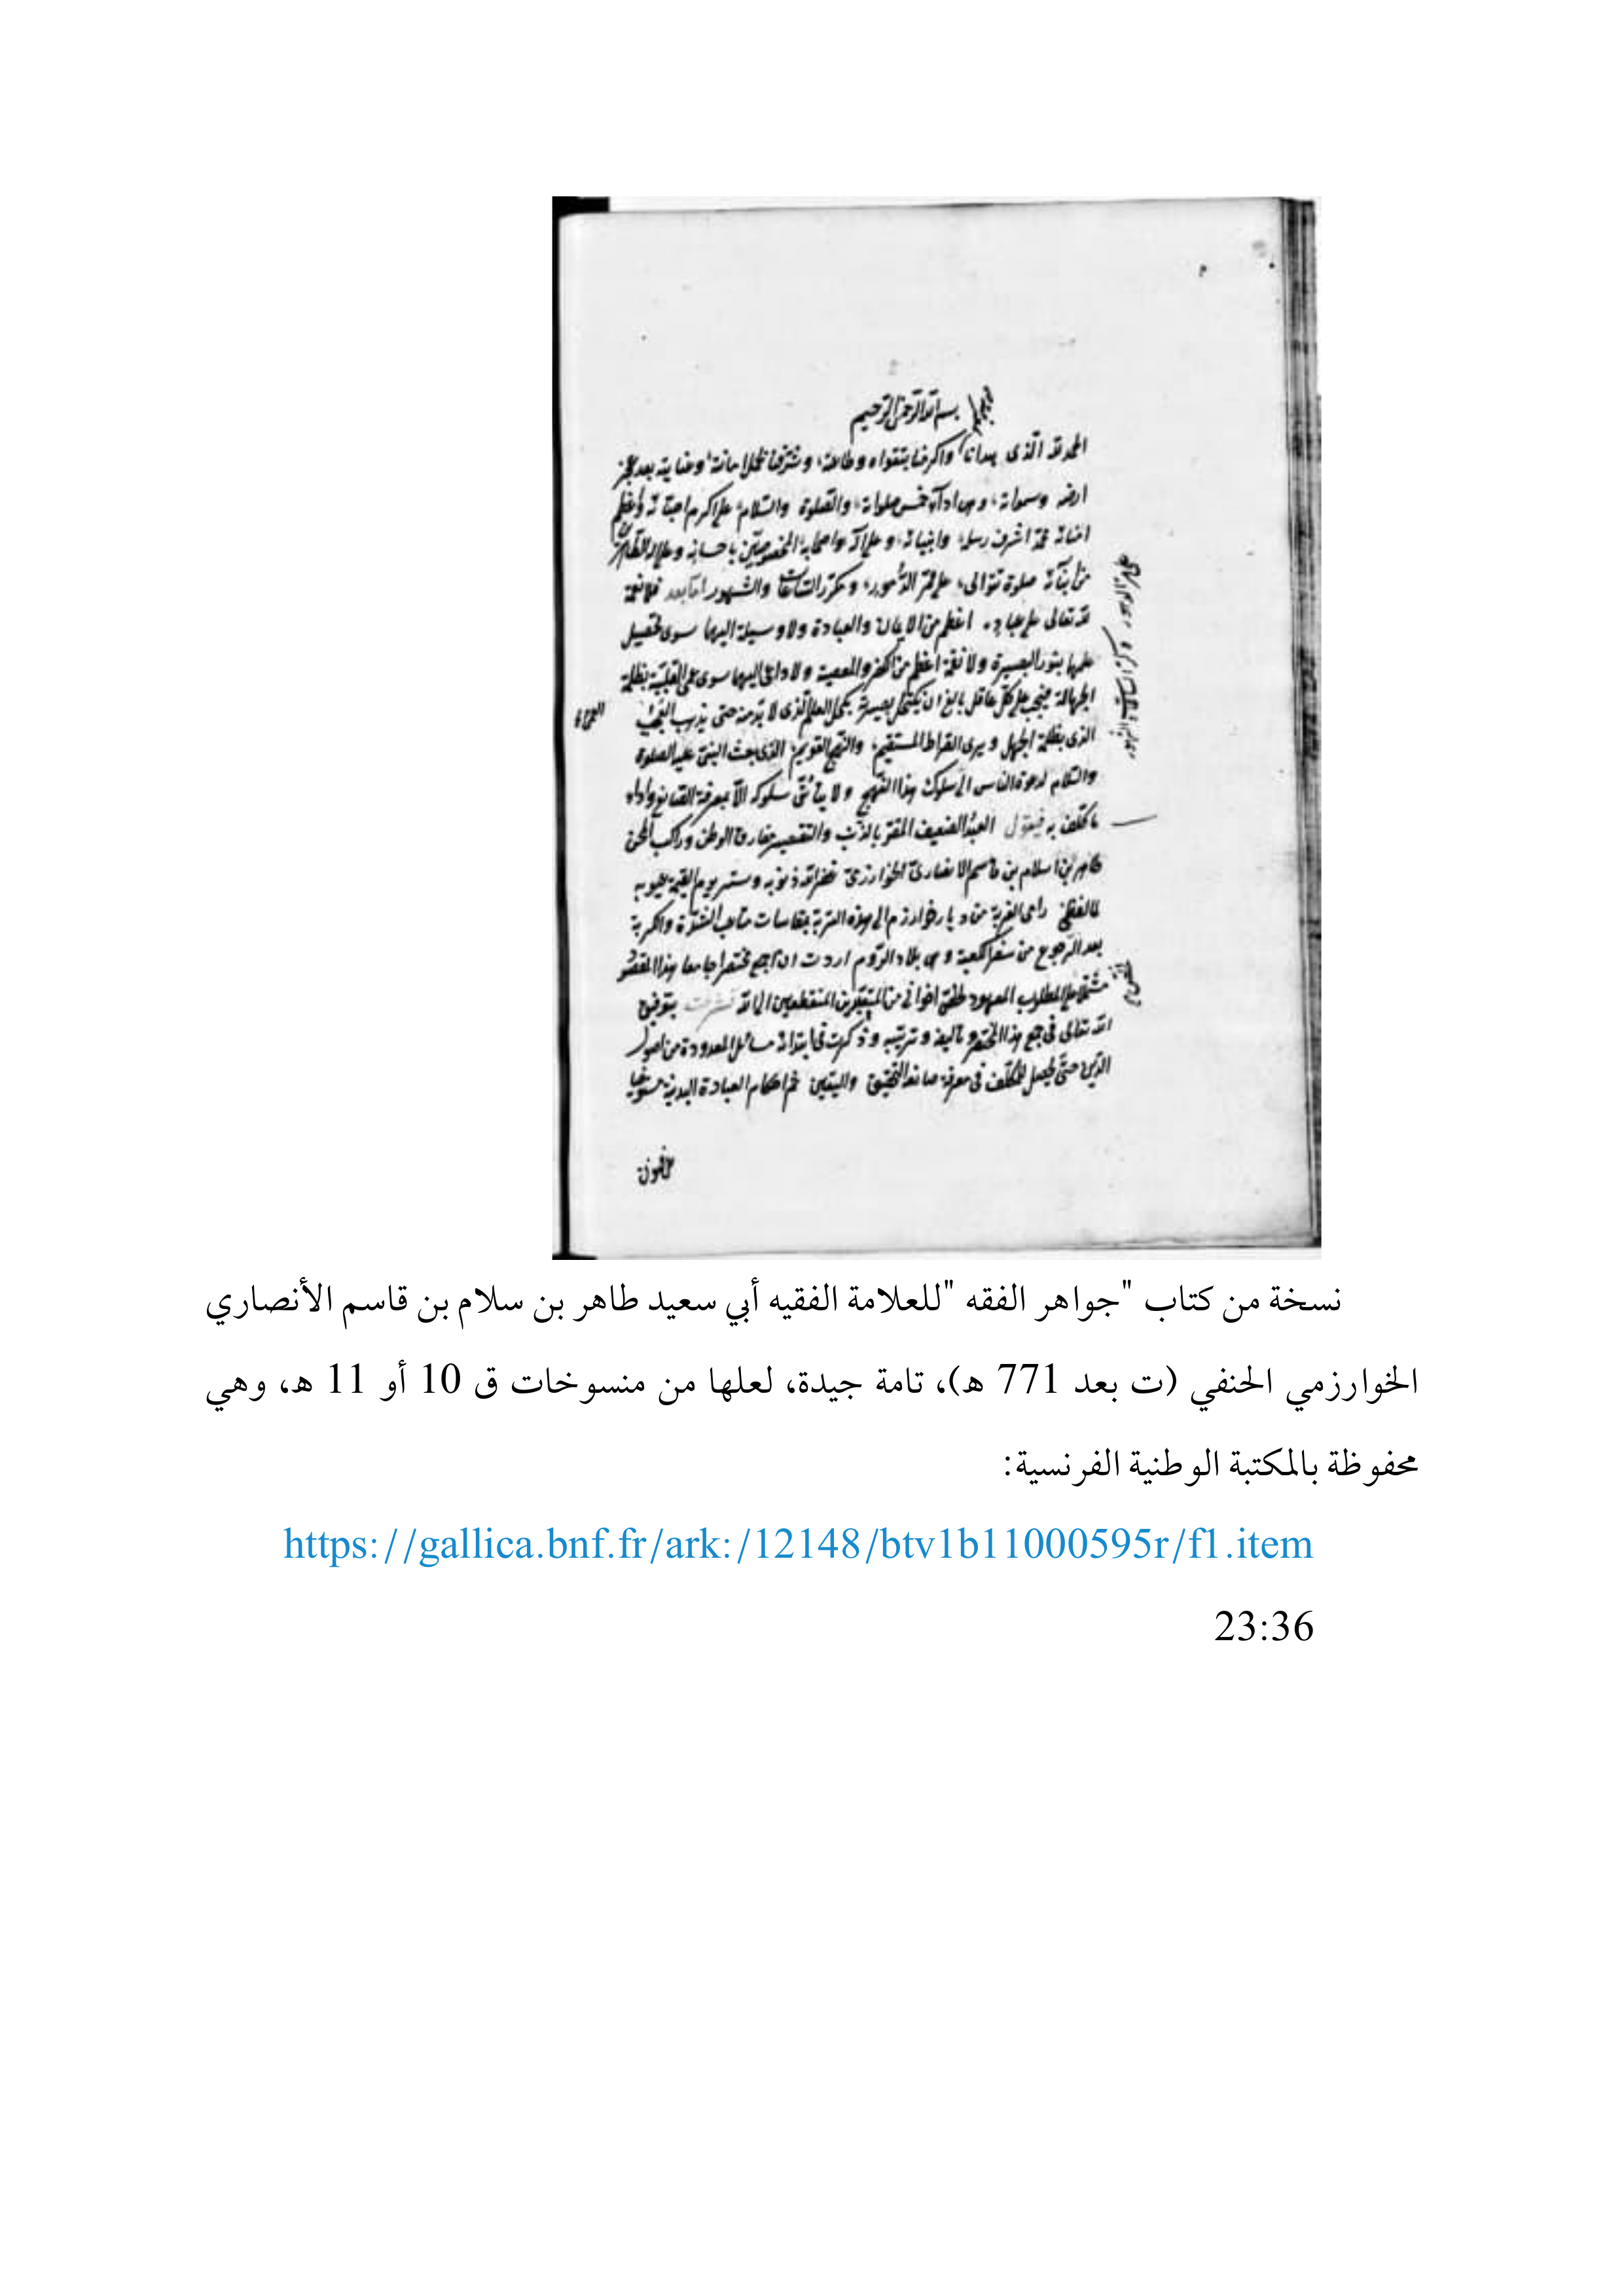 بسم الله الرحمن الرحيم
الحمد لله الذى هدانا واكرمنا بتقواه وطاعته وشرفنا
ارضه وسمواته والصلوة والسلام على اكرم
محمد اشرف رسله وانبيائه وعلى آله واصحابه المخصوصين باحسانه وعلى
صلوة تتوالى على الدهور وتكرر الساعات والشهور اما بعد فلا نعمة
لله تعالى على عباده اعظم من الايمان والعبادة ولا وسيلة اليهما سوى تحصيل
علمها بنور البصيرة ولا نقمة اعظم من الكفر والمعصية ولا داعى اليهما سوى
الجهالة فيجب على كل عاقل بالغ ان يكتحل بصيرته بكحل العلم الذى لا بد منه حتى
الذى بظلمة الجهل ويرى الصراط المستقيم والنهج القويم الذى بعث النبى عليه الصلوة
والسلام لدعوة الناس الى سلوك هذا النهج ولا يتأتى سلوكه الا بمعرفة الصانع واداء
ما كلف به فيقول العبد الضعيف المقر بالذنب والتقصير مفارق الوطن وراكب المحن
طاهر بن اسلام بن قاسم الانصارى الخوارزمى غفر الله ذنوبه وستر يوم القيمة عيوبه
من ديار خوارزم الى هذه التربة بمقاسات متاعب الشدة والكربة
بعد الرجوع من سفر الكعبة وهى بلاد الروم اردت ان اجمع مختصرا جامعا لهذا المقصود
مشتملا على المطلوب المعهود اخوانى من المنقطعين الى الله فشرعت بتوفيق
الله تعالى فى جمع هذا المختصر وتاليفه وترتيبه وذكرت فى ابتدائه مسائل المعدودة من اصول
الدين حتى يحصل للمكلف فى معرفة صانعه التحقيق واليقين ثم احكام العبادة البدنية
نسخة من كتاب "جواهر الفقه "للعلامة الفقيه أبي سعيد طاهر بن سلام بن قاسم الأنصاري
الخوارزمي الحنفي (ت بعد 771 هـ)، تامة جيدة، لعلها من منسوخات ق 10 أو 11 هـ، وهي
محفوظة بالمكتبة الوطنية الفرنسية:
https://gallica.bnf.fr/ark:/12148/btv1b11000595r/f1.item
23:36